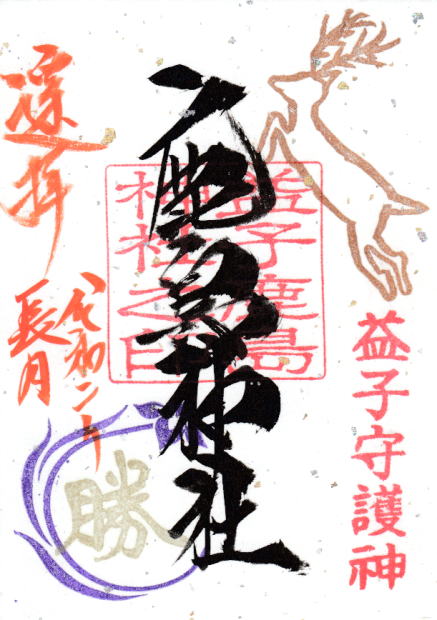 益子守護神
鹿島神社
益子鹿島
神社之印
遥拝
令和二年
長月
勝